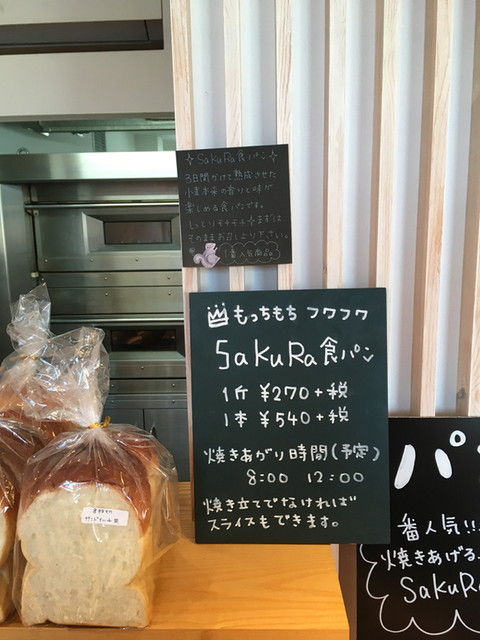 ✧ SakuRa食パン ✧
3日間かけて熟成させた
小麦本来の香りと味が
楽しめる食パンです。
しっとりモチモチ✧まずは
そのままお召し上り下さい。
1番人気商品
もっちもち フワフワ
SakuRa食パン
1斤 ¥270+税
1本 ¥540+税
焼きあがり時間(予定)
8:00 12:00
焼き立てでなければ
スライスもできます。
パ
番人気!!
焼きあげる
SakuRa